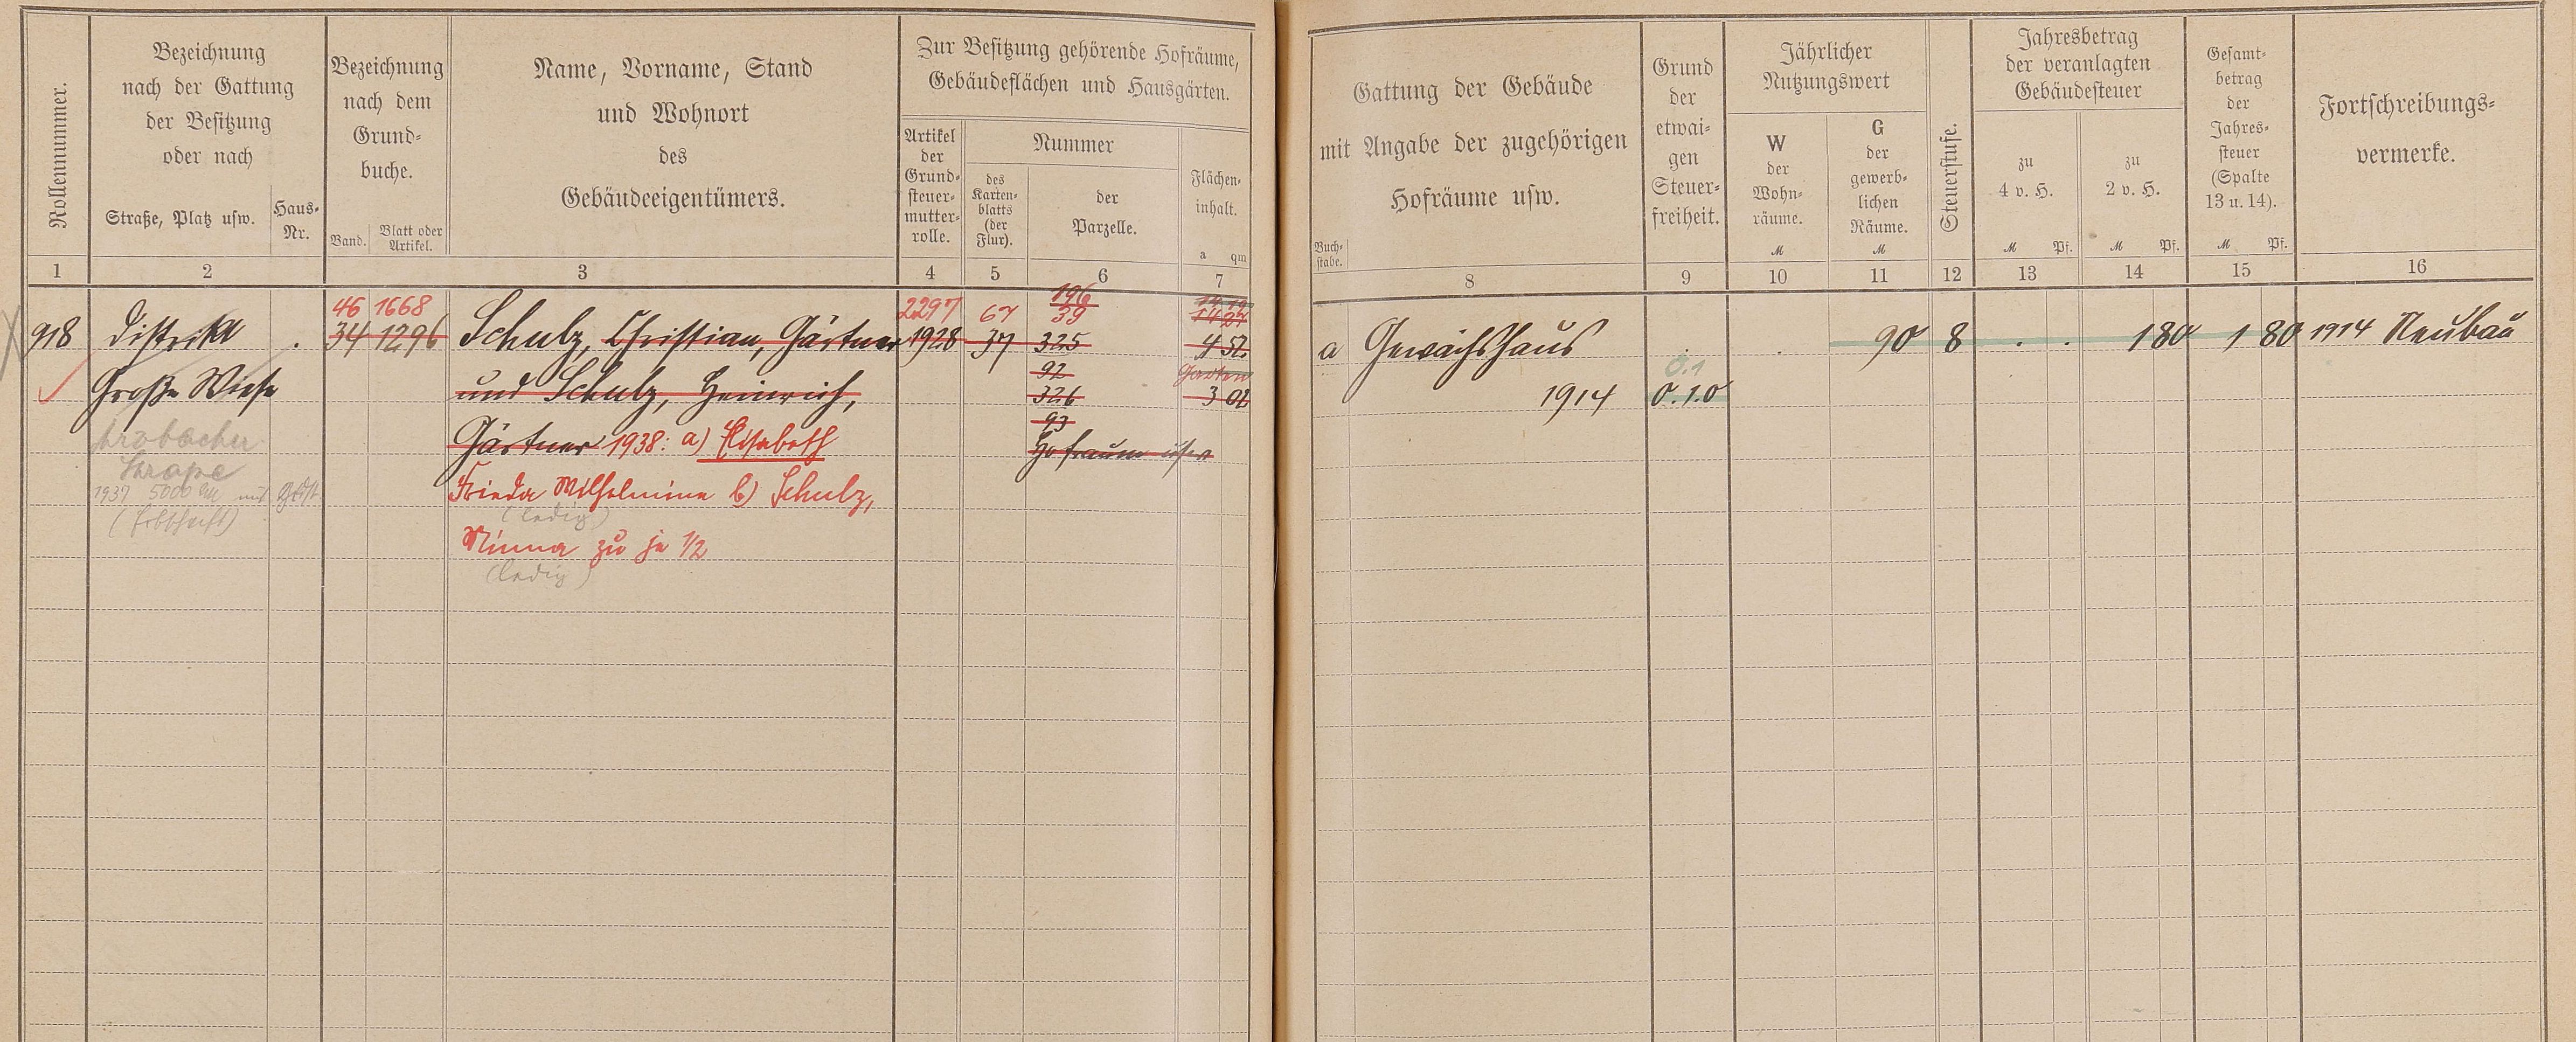 Rollennummer.
Bezeichnung
nach der Gattung
der Besitzung
oder nach
Straße, Platz usw.
Haus-
Nr.
Bezeichnung
nach dem
Grund-
buche.
Band.
Blatt oder
Artikel.
Name, Vorname, Stand
und Wohnort
des
Gebäudeeigentümers.
Zur Besitzung gehörende Hofräume,
Gebäudeflächen und Hausgärten.
Artikel
der
Grund-
steuer-
mutter-
rolle.
Nummer
des
Karten-
blatts
(der
Flur).
der
Parzelle.
Flächen-
inhalt.
a qm
1 2 3 4 5 6 7
Gattung der Gebäude
mit Angabe der zugehörigen
Hofräume usw.
Buch-
stabe.
Grund
der
etwai-
gen
Steuer-
freiheit.
Jährlicher
Nutzungswert
W
der
Wohn-
räume.
M
G
der
gewerb-
lichen
Räume.
M
Steuerstufe.
Jahresbetrag
der veranlagten
Gebäudesteuer
zu
4 v. H.
M Pf.
zu
2 v. H.
M Pf.
Gesamt-
betrag
der
Jahres-
steuer
(Spalte
13 u. 14).
M Pf.
Fortschreibungs-
vermerke.
8 9 10 11 12 13 14 15 16
46 1668 2297 67 196
39
918 Distrikt . 34 1296 Schulz, Christian, Gärtner 1928 37 325 4 52
92 Garten
Große Wiese und Schulz, Heinrich, 326 3 02
93
Gärtner 1938: a) Elisabeth Hofraum usw
Frieda Wilhelmine b) Schulz,
1937 5000
(ledig)
Minna zu je 1/2
(ledig)
a Gewächshaus . . 90 8 . . 1 80 1 80 1914 Neubau
0.1
1914 0.1.0